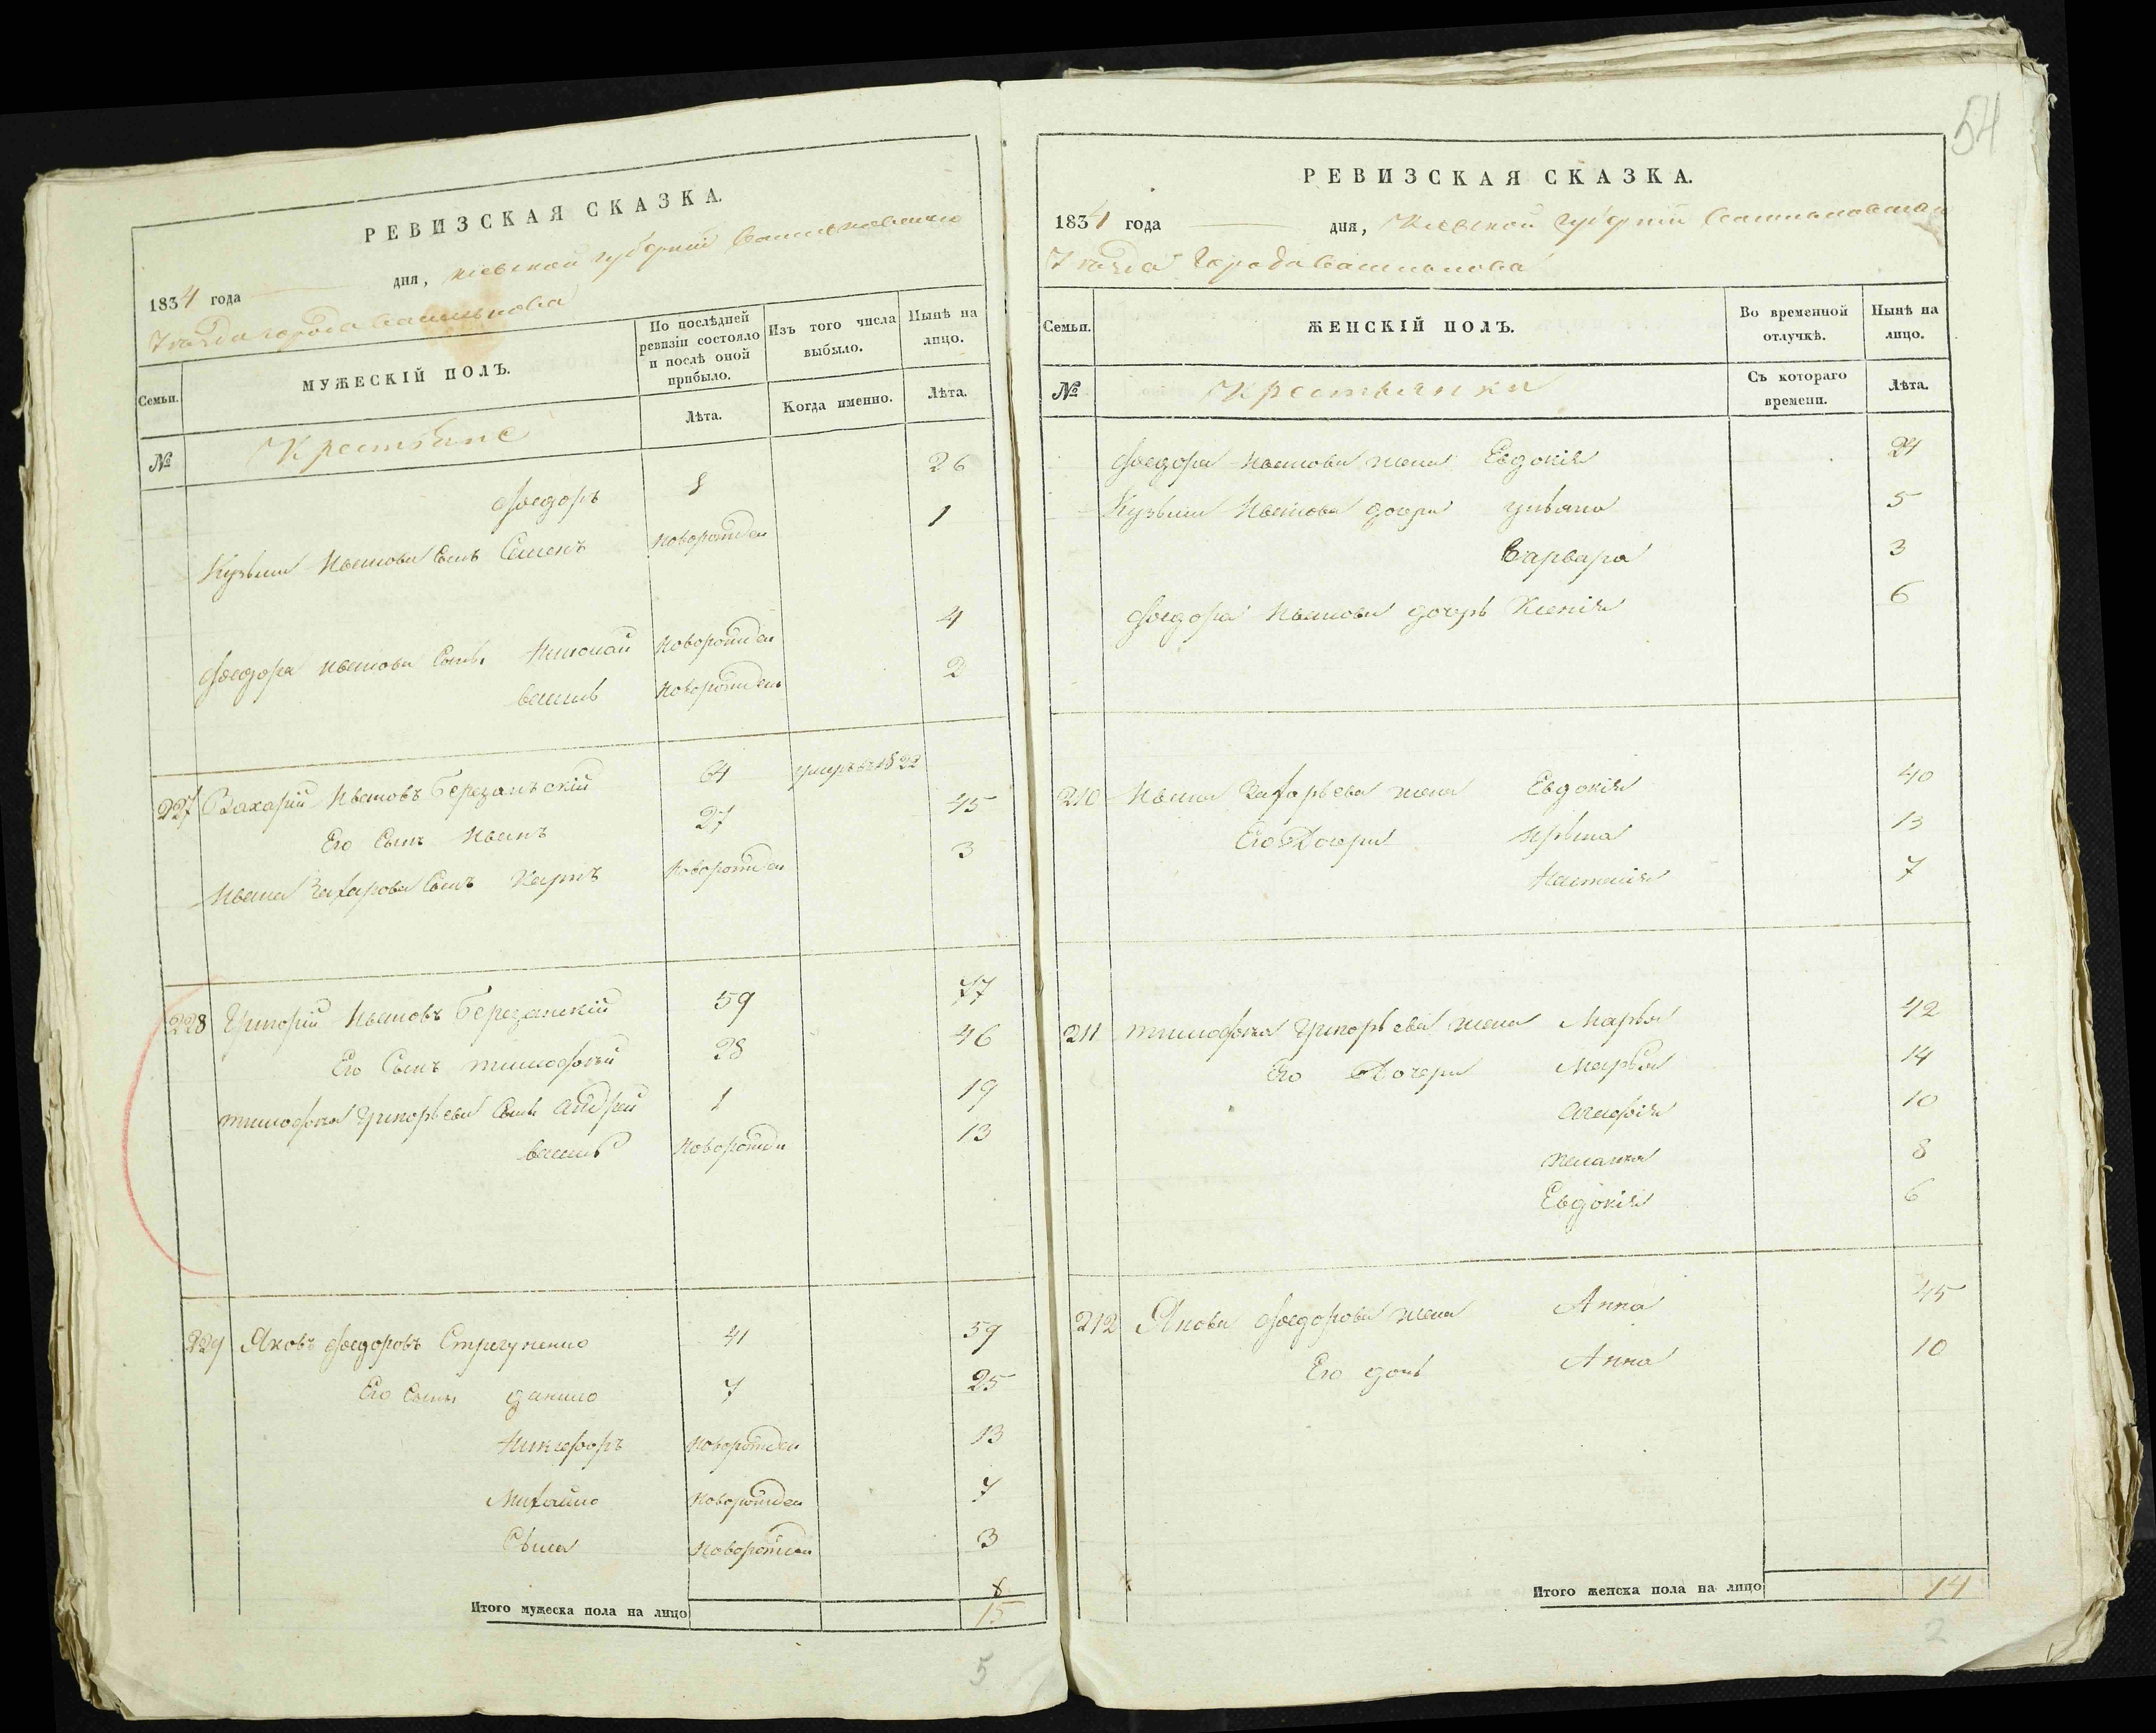 54
РЕВИЗСКАЯ СКАЗКА.
1834 года дня, Киевской губернии Васильковского
Уезда города Василькова
Семьи.
МУЖЕСКІЙ ПОЛЪ.
По послѣдней ревизіи состояло и послѣ оной прибыло.
Изъ того числа выбыло.
Нынѣ на лицо.
№
Крестьяне
Лѣта.
Когда именно.
Лѣта.
Федоръ 8 26
Кузьмы Иванова сынъ Семенъ новорожден 1
Федора Иванова сынъ Николай новорожден 4
Василь новорожденъ 2
227 Захарій Ивановъ Березаньскій 64 умеръ въ 1822
Его сынъ Иванъ 27 45
Ивана Захарова сынъ Карпъ новорожден 3
228 Григорій Ивановъ Березанскій 59 77
Его сынъ Тимофѣй 28 46
Тимофѣя Григорьева сынъ Андрей 1 19
Василь новорожден 13
229 Яковъ Федоровъ 41 59
Его сынъ Данило 7 25
Никифоръ новорожден 13
Михайло новорожден 7
новорожден 3
Итого мужеска пола на лицо 15
5
РЕВИЗСКАЯ СКАЗКА.
1834 года дня, Киевской губернии Васильковскаго
Уезда Города Василькова
Семьи.
ЖЕНСКІЙ ПОЛЪ.
Во временной отлучкѣ.
Нынѣ на лицо.
№
Крестьянки
Съ котораго времени.
Лѣта.
Федора Иванова жена Евдокія 24
Кузьмы Иванова дочери Ульяна 5
Варвара 3
Федора Иванова дочерь Ксенія 6
210 Ивана Захарьева жена Евдокія 40
Его Дочери Ирына 13
Настасія 7
211 Тимофѣя Григорьева жена Марья 42
Его Дочери Марья 14
Агафія 10
Меланья 8
Евдокія 6
212 Якова Федорова жена Анна 45
Его дочь Анна 10
Итого женска пола на лицо 14
2